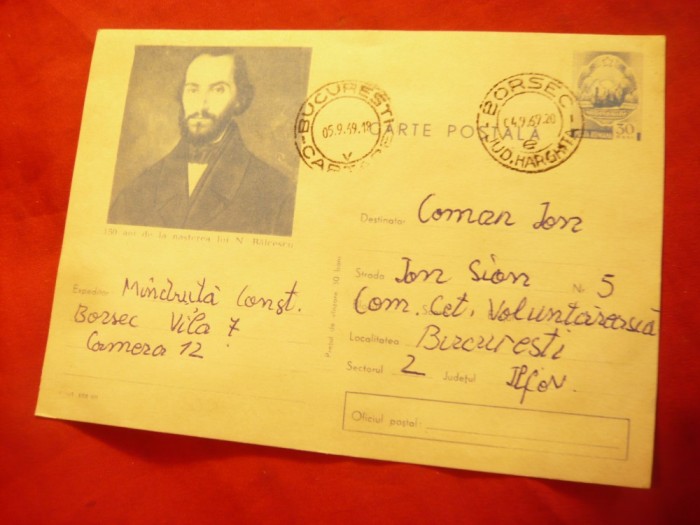 BUCURESTI
05.9.69.18
V
CARTE POSTALĂ
BORSEC
04.9.69.20
e
JUD. HARGHITA
50
150 ani de la nașterea lui N. Bălcescu
Destinatar Coman Ion
Strada Ion Sion Nr. 5
Com. Cet. Voluntărească
Localitatea București
Sectorul 2 Județul Ilfov
Oficiul poștal:
Expeditor Mîndruță Const.
Borsec Vila 7
Camera 12
Prețul de vînzare 50 bani